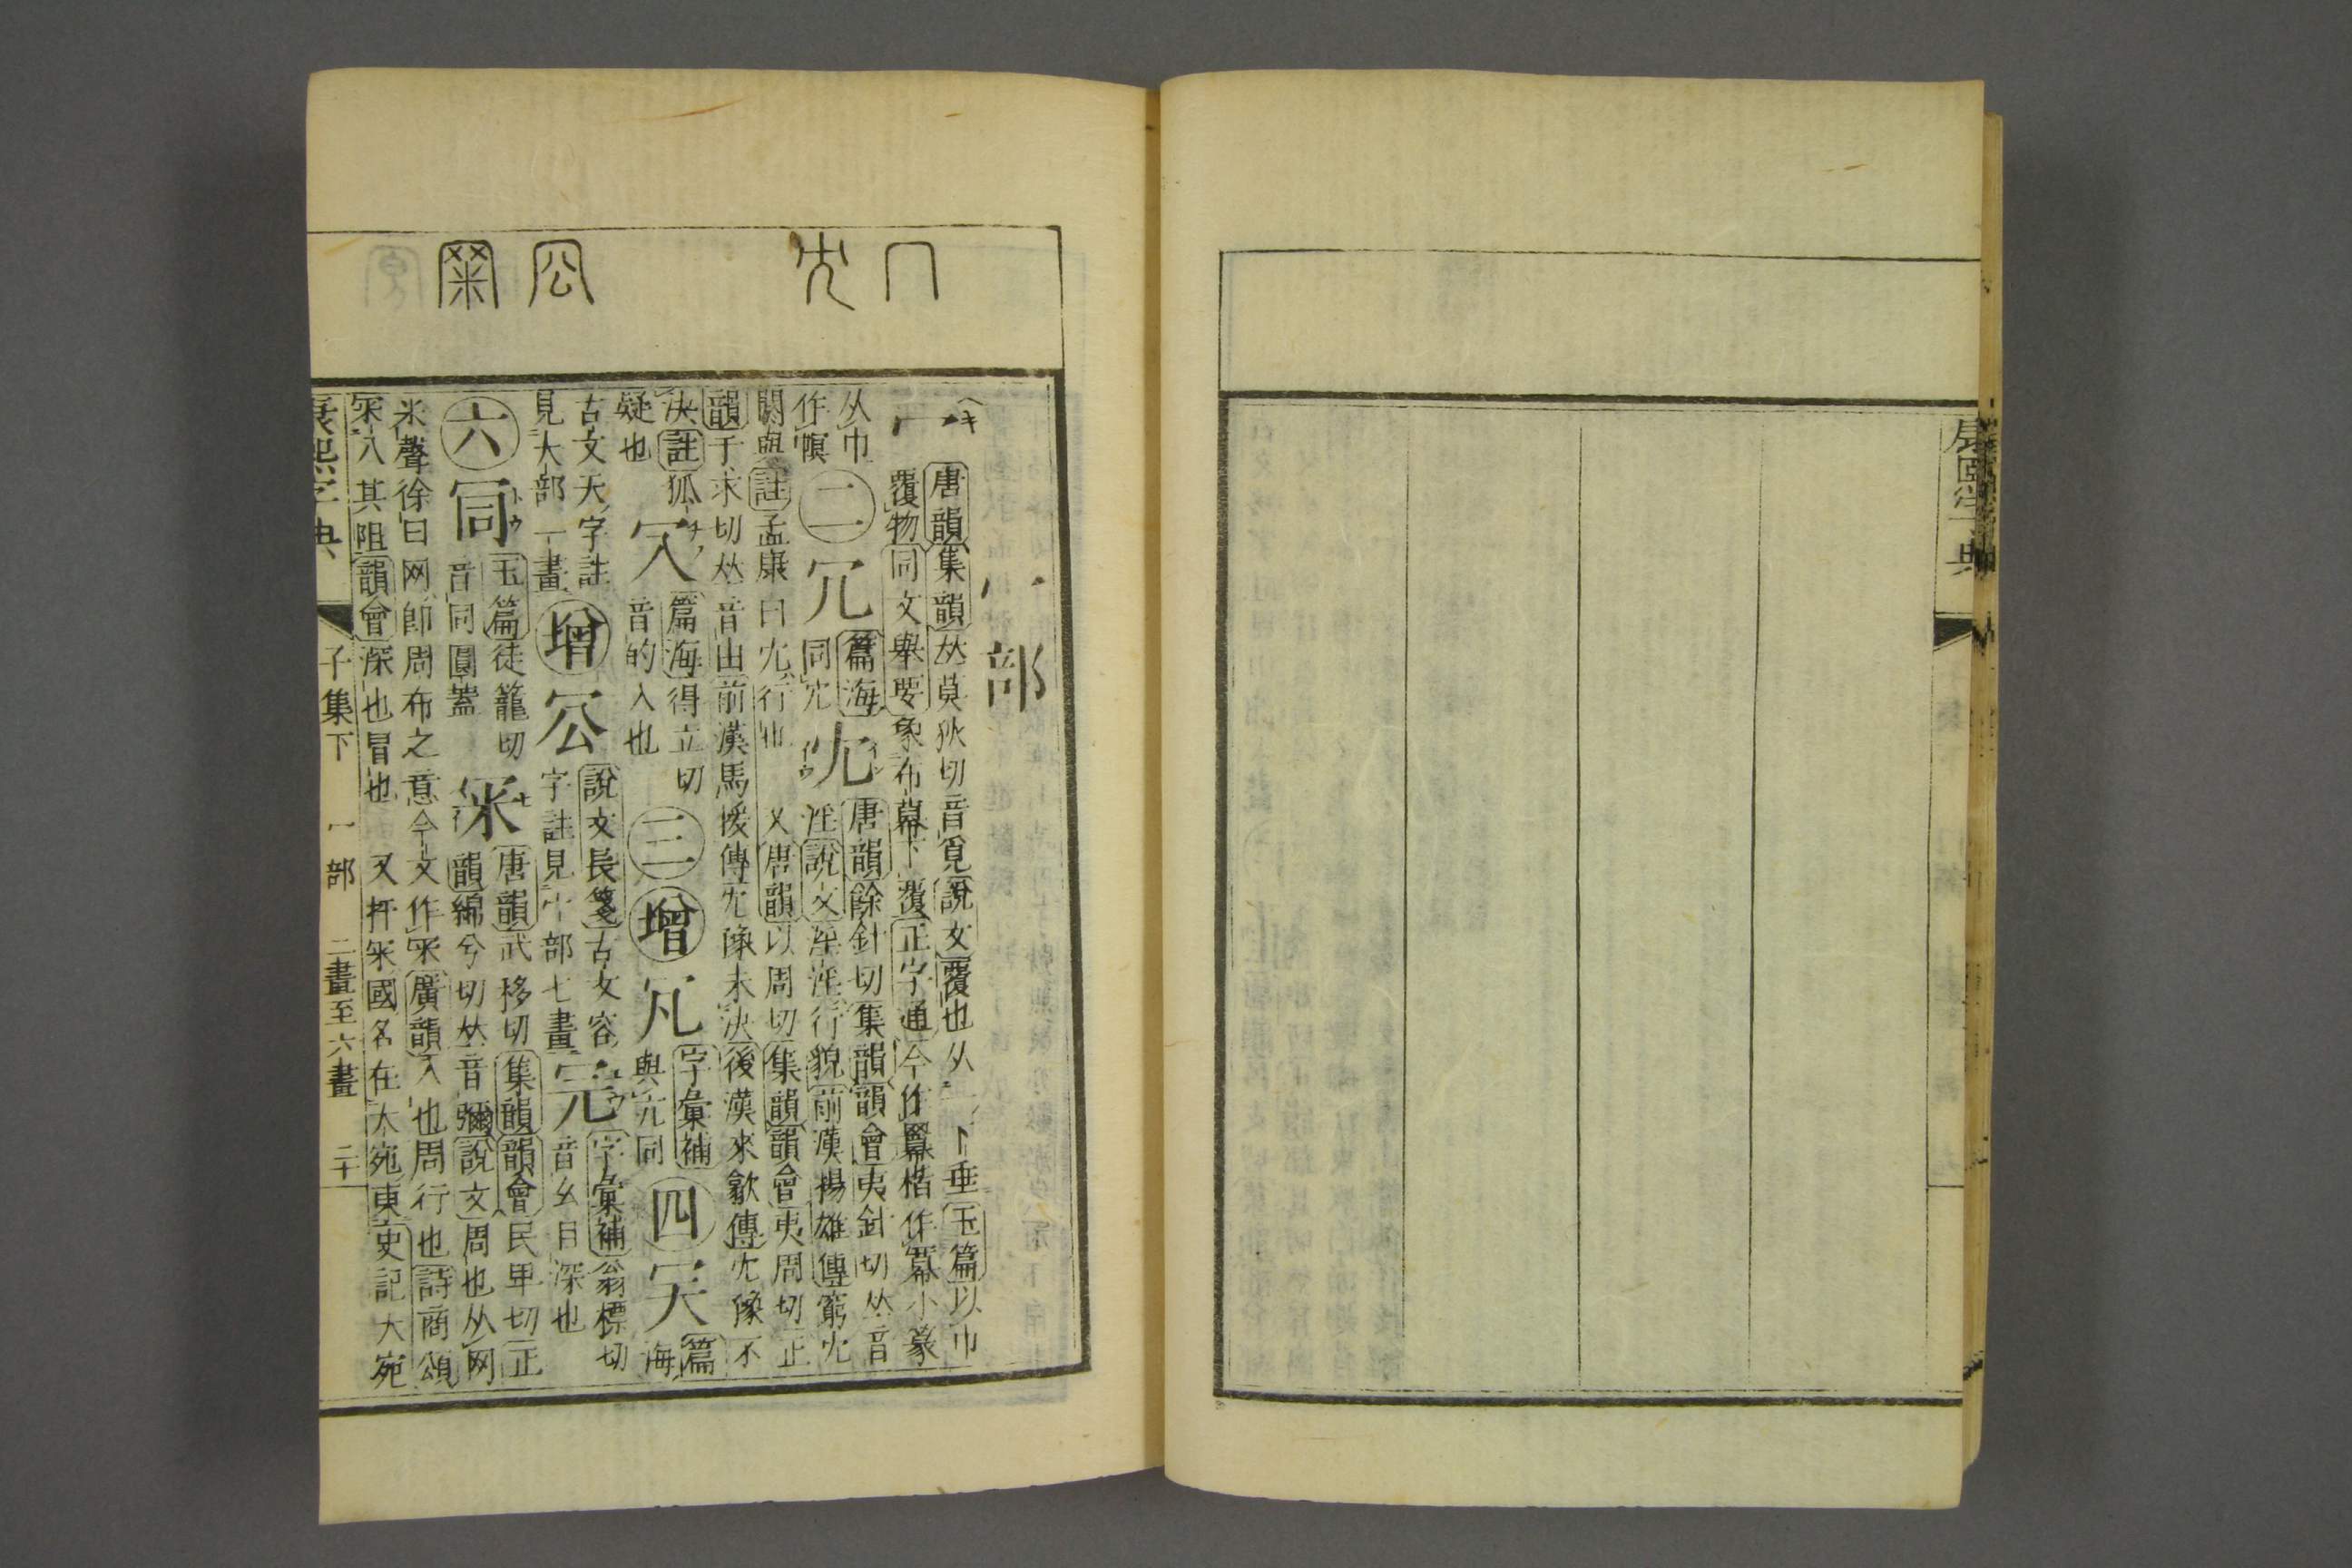 康熙字典
冖部
冖
唐韻集韻𠀤莫狄切音覓說文覆也从一下垂玉篇以巾
覆物同文舉要象布幕下覆正字通今作羃楷作冪小篆
从巾
作幎
二 冗
篇海
同宂
冘
唐韻餘針切集韻韻會夷針切𠀤音
淫說文淫淫行貌前漢揚雄傳窮冘
閼與註孟康曰冘行也 又唐韻以周切集韻韻會夷周切正
韻于求切𠀤音由前漢馬援傳冘豫未決後漢來歙傳冘豫不
決註狐
疑也
篇海得立切
音的入也
三 增
字彙補
與冗同
四
篇
海
古文天字註
見大部一畫
增
說文長箋古文容
字註見宀部七畫
字彙補翁標切
音幺目深也
六
玉篇徒籠切
音同圓蓋
冞
唐韻武移切集韻韻會民卑切正
韻綿兮切𠀤音彌說文周也从网
米聲徐曰网卽周布之意今文作冞廣韻入也周行也詩商頌
冞入其阻韻會深也冒也 又扞冞國名在大宛東史記大宛
康熙字典 子集下 冖部 二畫至六畫 二十